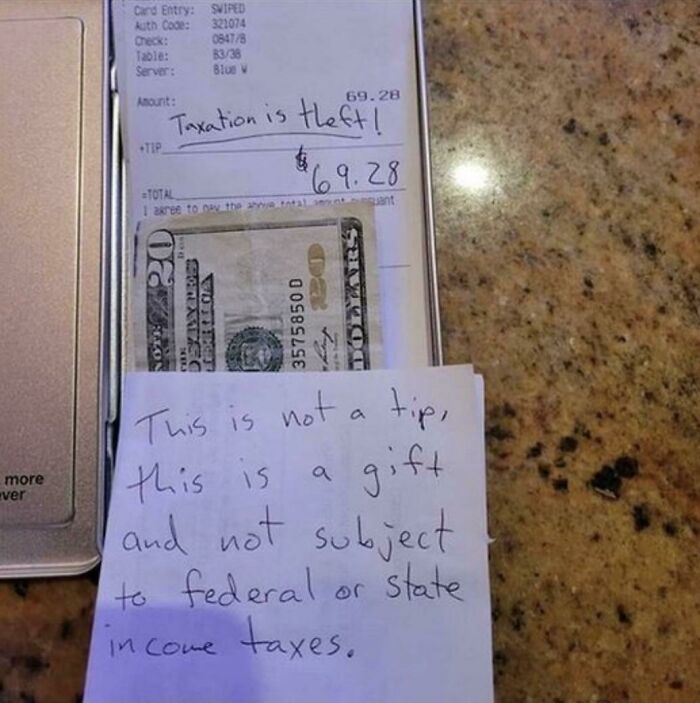 Card Entry: SWIPED
Auth Code: 321074
Check: 0847/B
Table: B3/38
Server: Blue W
Amount: 69.28
Taxation is theft!
+TIP
$69.28
=TOTAL
I agree to pay the above total amount pursuant
20
3575850 D
20
DOLLARS
This is not a tip,
this is a gift
and not subject
to federal or state
income taxes.
more
ver